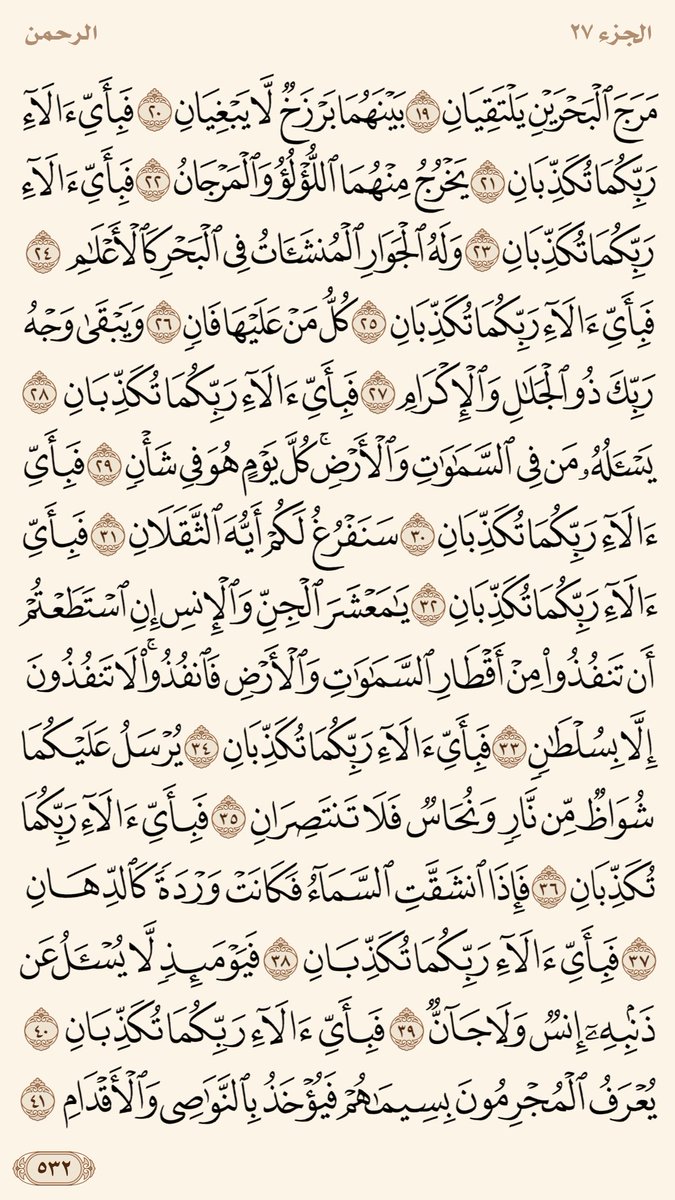 الجزء ٢٧
الرحمن
مَرَجَ ٱلْبَحْرَيْنِ يَلْتَقِيَانِ ١٩ بَيْنَهُمَا بَرْزَخٌ لَّا يَبْغِيَانِ ٢٠ فَبِأَيِّ ءَالَآءِ
رَبِّكُمَا تُكَذِّبَانِ ٢١ يَخْرُجُ مِنْهُمَا ٱللُّؤْلُؤُ وَٱلْمَرْجَانُ ٢٢ فَبِأَيِّ ءَالَآءِ
رَبِّكُمَا تُكَذِّبَانِ ٢٣ وَلَهُ ٱلْجَوَارِ ٱلْمُنشَـَٔاتُ فِى ٱلْبَحْرِ كَٱلْأَعْلَـٰمِ ٢٤
فَبِأَيِّ ءَالَآءِ رَبِّكُمَا تُكَذِّبَانِ ٢٥ كُلُّ مَنْ عَلَيْهَا فَانٍ ٢٦ وَيَبْقَىٰ وَجْهُ
رَبِّكَ ذُو ٱلْجَلَـٰلِ وَٱلْإِكْرَامِ ٢٧ فَبِأَيِّ ءَالَآءِ رَبِّكُمَا تُكَذِّبَانِ ٢٨
يَسْـَٔلُهُۥ مَن فِى ٱلسَّمَـٰوَٰتِ وَٱلْأَرْضِ ۚ كُلَّ يَوْمٍ هُوَ فِى شَأْنٍ ٢٩ فَبِأَيِّ
ءَالَآءِ رَبِّكُمَا تُكَذِّبَانِ ٣٠ سَنَفْرُغُ لَكُمْ أَيُّهَ ٱلثَّقَلَانِ ٣١ فَبِأَيِّ
ءَالَآءِ رَبِّكُمَا تُكَذِّبَانِ ٣٢ يَـٰمَعْشَرَ ٱلْجِنِّ وَٱلْإِنسِ إِنِ ٱسْتَطَعْتُمْ
أَن تَنفُذُوا۟ مِنْ أَقْطَارِ ٱلسَّمَـٰوَٰتِ وَٱلْأَرْضِ فَٱنفُذُوا۟ ۚ لَا تَنفُذُونَ
إِلَّا بِسُلْطَـٰنٍ ٣٣ فَبِأَيِّ ءَالَآءِ رَبِّكُمَا تُكَذِّبَانِ ٣٤ يُرْسَلُ عَلَيْكُمَا
شُوَاظٌ مِّن نَّارٍ وَنُحَاسٌ فَلَا تَنتَصِرَانِ ٣٥ فَبِأَيِّ ءَالَآءِ رَبِّكُمَا
تُكَذِّبَانِ ٣٦ فَإِذَا ٱنشَقَّتِ ٱلسَّمَآءُ فَكَانَتْ وَرْدَةً كَٱلدِّهَانِ
٣٧ فَبِأَيِّ ءَالَآءِ رَبِّكُمَا تُكَذِّبَانِ ٣٨ فَيَوْمَئِذٍ لَّا يُسْـَٔلُ عَن
ذَنۢبِهِۦٓ إِنسٌ وَلَا جَآنٌّ ٣٩ فَبِأَيِّ ءَالَآءِ رَبِّكُمَا تُكَذِّبَانِ ٤٠
يُعْرَفُ ٱلْمُجْرِمُونَ بِسِيمَـٰهُمْ فَيُؤْخَذُ بِٱلنَّوَٰصِى وَٱلْأَقْدَامِ ٤١
٥٣٢